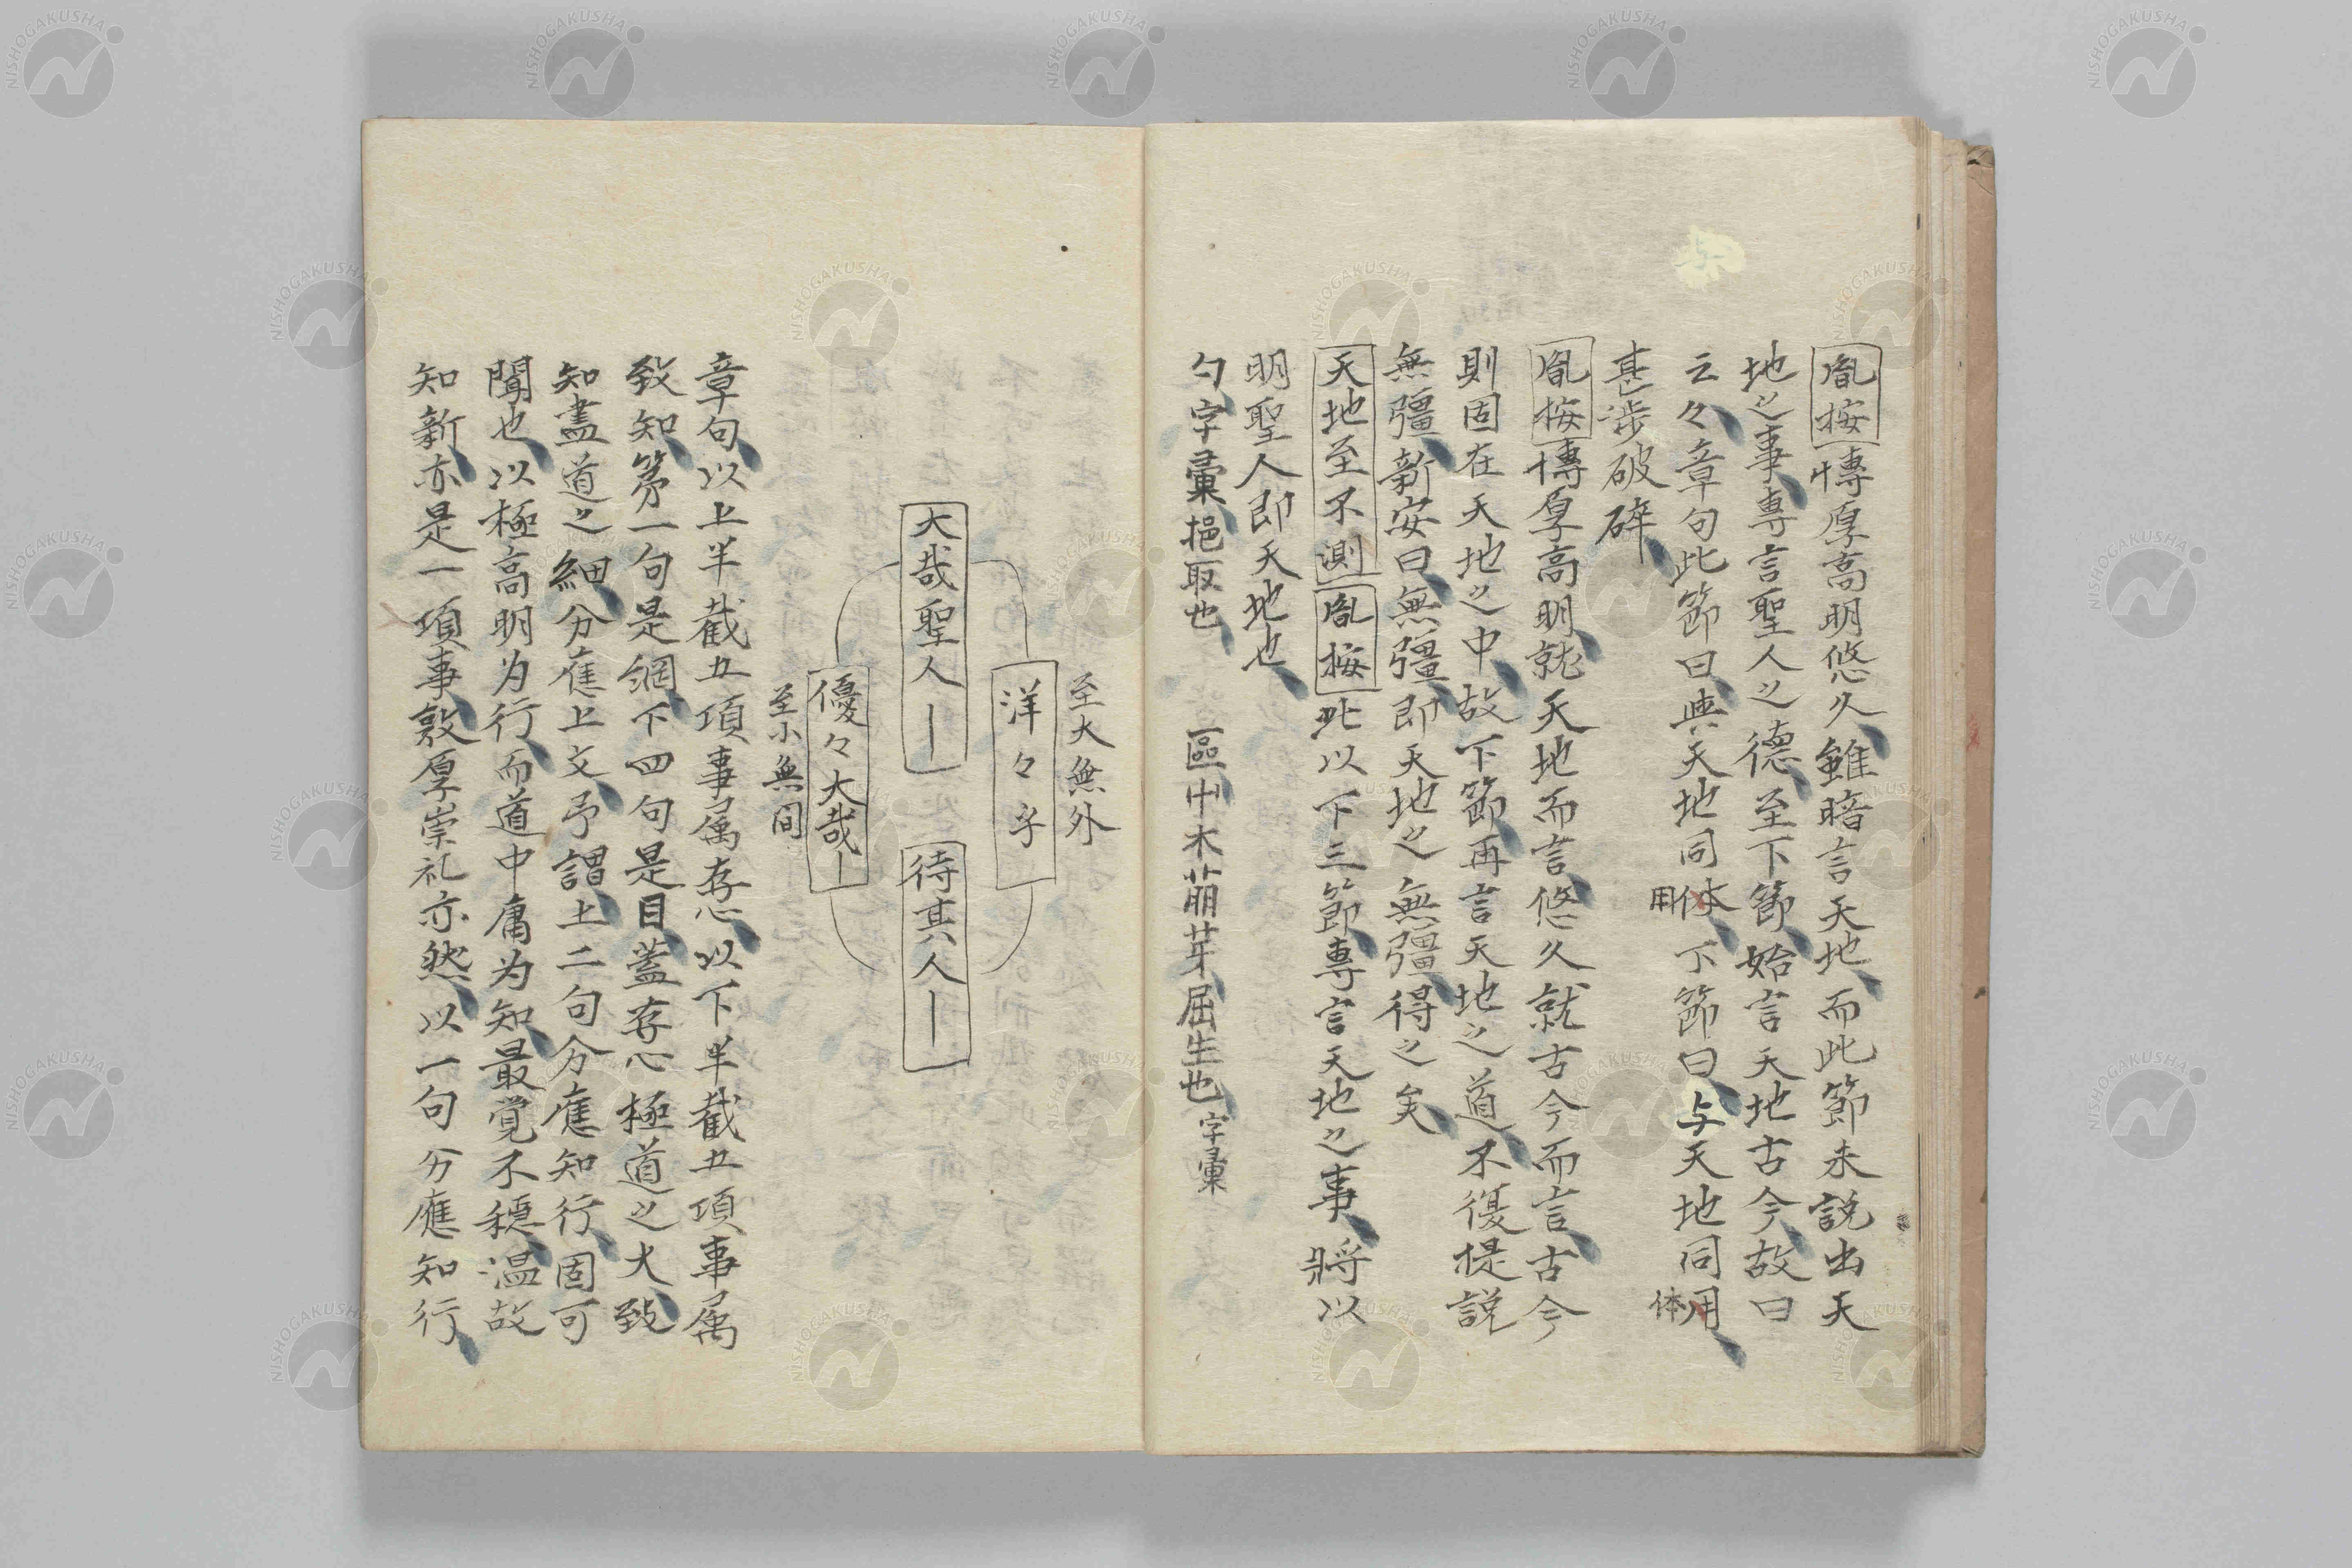 胤按 博厚高明悠久雖暗言天地而此節未説出天
地之事専言聖人之德至下節始言天地古今故曰
云々章句此節曰與天地同体用下節曰与天地同用体
甚渉破碎
胤按 博厚高明就天地而言悠久就古今而言古今
則固在天地之中故下節再言天地之道不復提説
無彊新安曰無彊即天地之無彊得之矣
天地至不測 胤按 此以下三節專言天地之事將以
明聖人即天地也
勺字彙挹取也 區中木萠芽屈生也字彙
至大無外
洋々乎
大哉聖人｜ 待其人｜
優々大哉｜
至小無間
章句以上半截五項事属存心以下半截五項事属
致知第一句是網下四句是目蓋存心極道之大致
知盡道之細分應上文予謂上二句分應知行固可
聞也以極高明为行而道中庸为知最覚不穏温故
知新亦是一項事敦厚崇礼亦然以一句分應知行
NISHOGAKUSHA